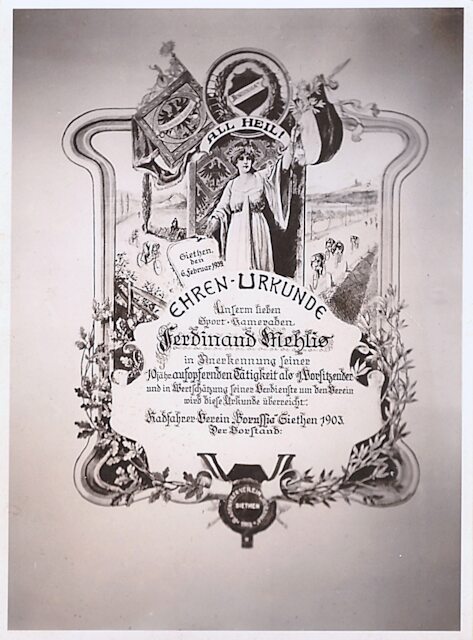 ALL HEIL!
Siethen,
den
6. Februar 1932.
EHREN-URKUNDE
Unserm lieben
Sport-Kameraden
Ferdinand Mehlis
in Anerkennung seiner
10 jähr. aufopfernden Tätigkeit als 1. Vorsitzender
und in Wertschätzung seiner Verdienste um den Verein
wird diese Urkunde überreicht.
Radfahrer-Verein „Borussia” Siethen 1903.
Der Vorstand:
SIETHEN